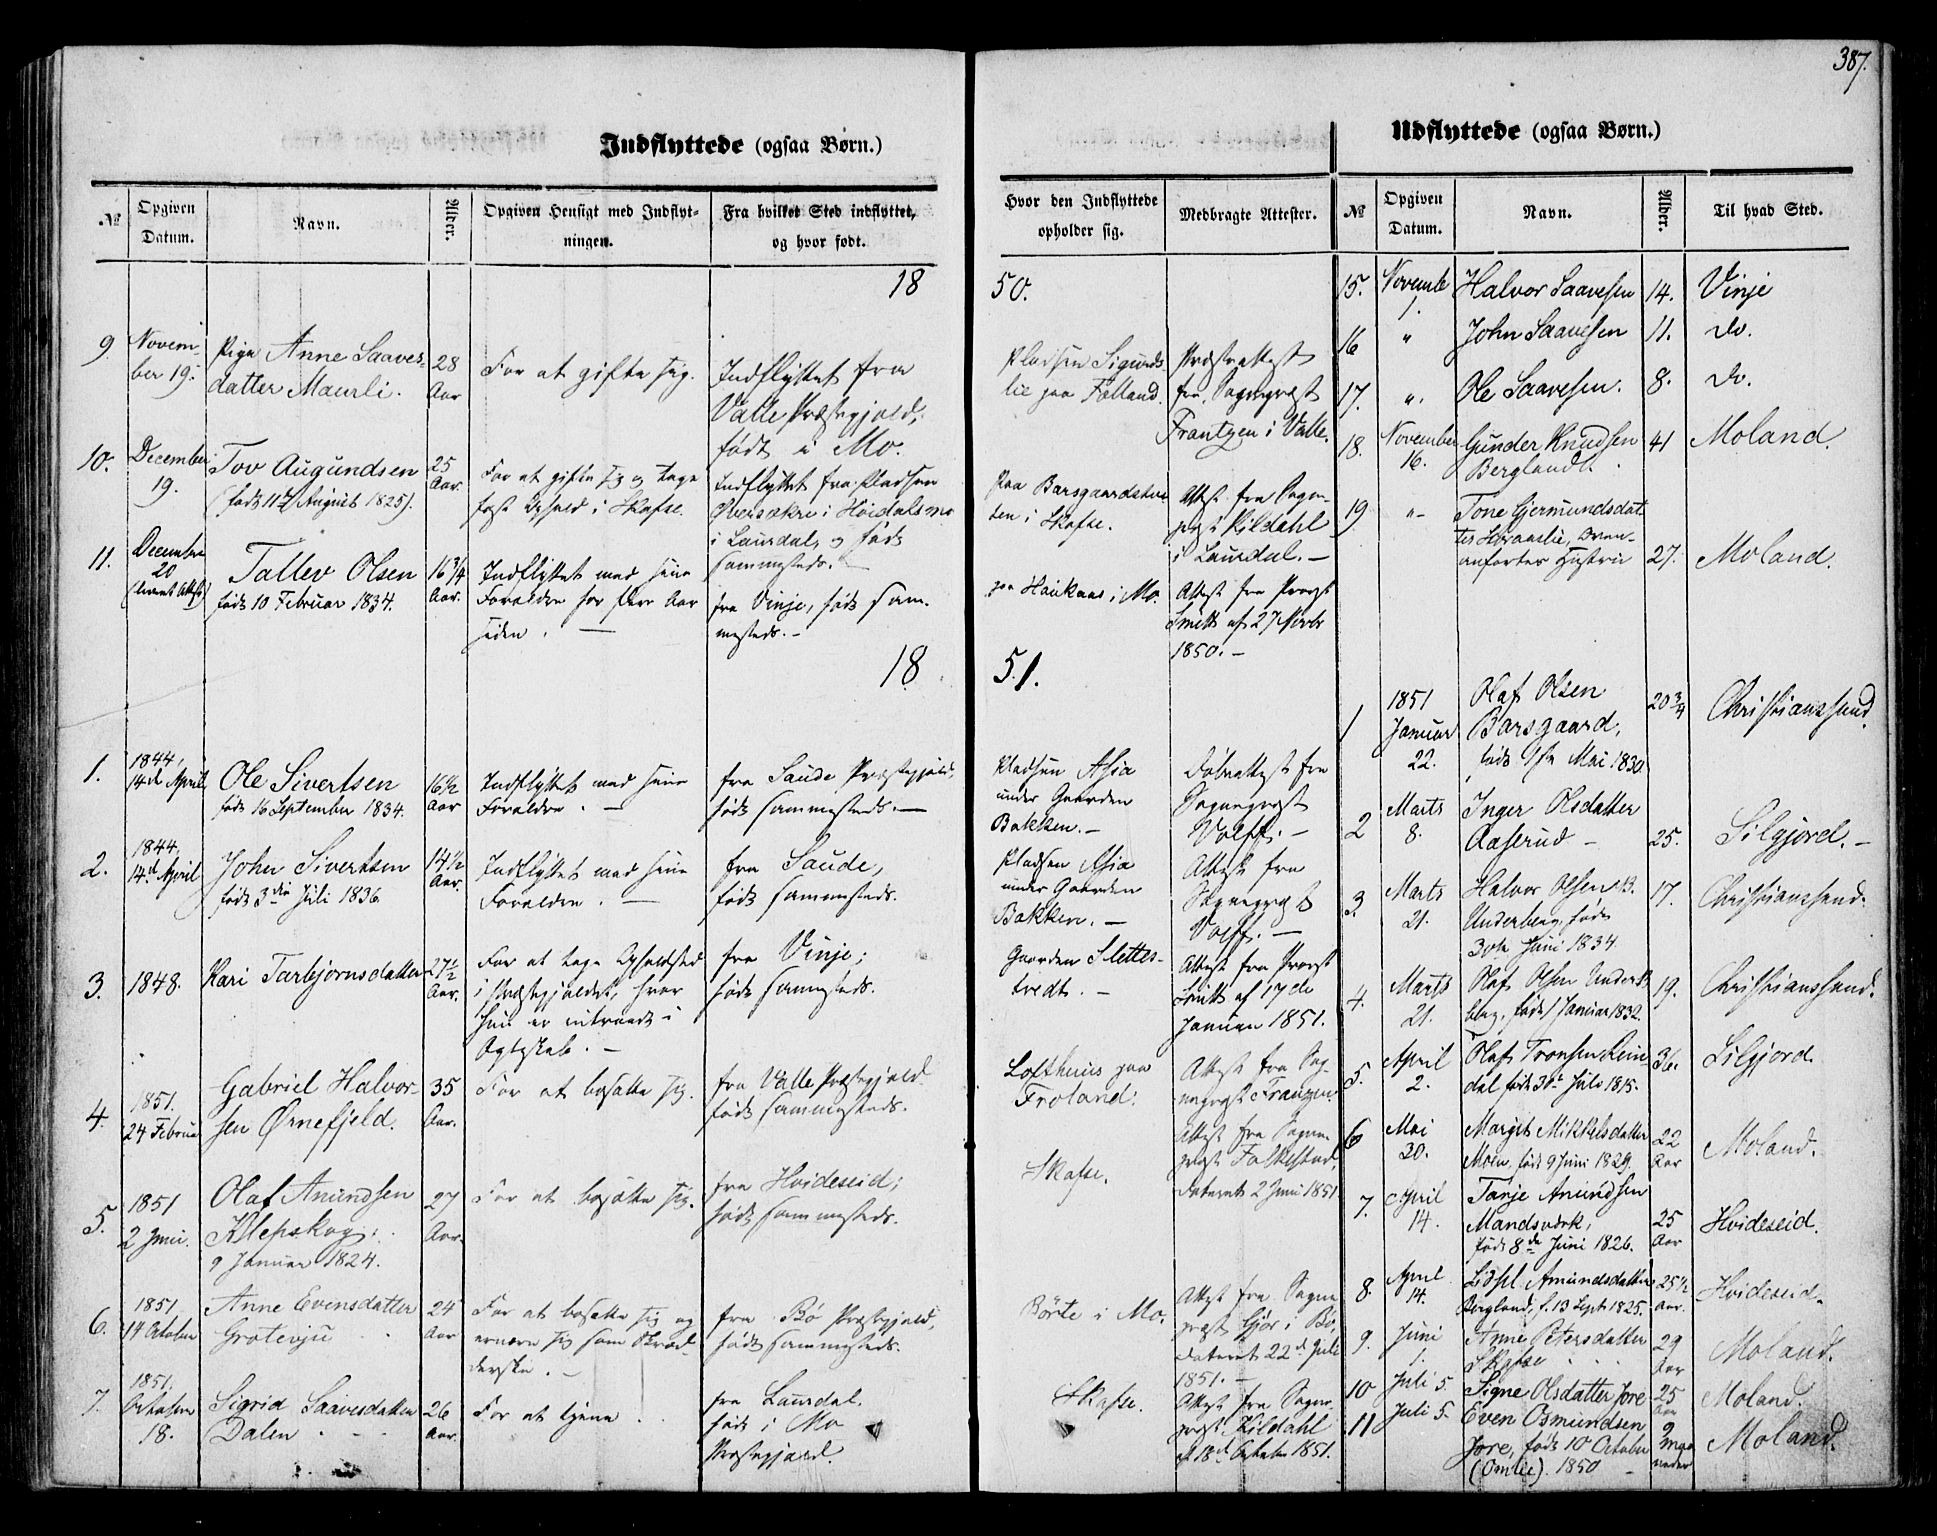 387.
Indflyttede (ogsaa Børn.)
№
Opgiven Datum.
Navn.
Alder.
Opgiven Hensigt med Indflyt-
ningen.
Fra hvilket Sted indflyttet,
og hvor født.
18
9
Novem-
ber 19.
Pige Anne Saaves-
datter Maurli.
28
Aar
For at gifte sig.
Indflyttet fra
Valle Præstegjæld;
født i Mo.
10.
December
19.
Tov Augundsen
(født 11te August 1825).
25
Aar.
For at gifte sig og tage
fast Ophold i Skafse.
Indflyttet fra Pladsen
i Høidalsmo
i Laurdal, og født
sammesteds.
11.
December
20
Tallev Olsen
født 10 Februar 1834.
16 3/4
Aar.
Indflyttet med sine
Forældre for flere Aar
siden. —
fra Vinje, født sam-
mesteds. —
18
1.
1844,
14de April
Ole Sivertsen
født 16 September 1834.
16 1/2
Aar
Indflyttet med sine
Forældre. —
fra Saude Præstegjæld,
født sammesteds. —
2.
1844,
14de April
John Sivertsen
født 3die Juli 1836
14 1/2
Aar.
Indflyttet med sine
Forældre. —
fra Saude,
født sammesteds.
3.
1848.
Kari Tarbjørnsdatter
27 1/2
Aar.
For at tage Opholdssted
i Præstegjældet, hvor
hun er indtraadt i
Ægteskab. —
fra Vinje;
født sammesteds.
4.
1851.
24 Februar
Gabriel Halvor-
sen Ørnefjeld.
35
Aar.
For at bosætte sig.
fra Valle Præstegjæld
født sammesteds.
5.
1851
2 Juni.
Olaf Anundsen
Klepskog;
9 Januar 1824.
27
Aar.
For at bosætte sig.
fra Hvideseid;
født sammesteds.
6.
1851
14 October
Anne Evensdatter
Grotevju
24
Aar
For at bosætte sig og
ernære sig som Skræd-
derske. —
fra Bø Præstegjæld,
født sammesteds.
7.
1851.
October
18.
Sigrid Saavesdatter
Dalen
26
Aar.
For at tjene
fra Laurdal.
født i Mo
Præstegjæld.
Hvor den Indflyttede
opholder sig.
Medbragte Attester.
50.
Pladsen Sigurds-
lie paa Folland.
Præsteattest
fra Sognepræst
Frantzen i Valle.
Paa
i Skafse.
Attest fra Sogne-
præst Kildahl
i Laurdal. —
paa Haukaas i Mo.
Attest fra Provst
Smitt af 27 Novbr
1850. —
51.
Pladsen Asia
under Gaarden
Bakken. —
Døbeattest fra
Sognepræst
Wolff. —
Pladsen Asia
under Gaarden
Bakken. —
Attest fra
Sognepræst
Wolff. —
Gaarden Slettes-
tvedt. —
Attest fra Provst
Smitt af 17de
Januar 1851.
Lofthuus paa
Froland.
Attest fra Sog-
nepræst Frantzen
Skafse.
Attest fra Sogne-
præst Falkestad,
dateret 2 Juni 1851
Børte i Mo.
Attest fra Sogne-
præst i Bø,
dateret 22de Juli
1851. —
Skafse.
Attest fra Sogne-
præst Kildahl
af 18de October 1851.
Udflyttede (ogsaa Børn.)
№
Opgiven Datum.
Navn.
Alder.
Til hvad Sted.
15.
Novembr
1.
Halvor Saavesen
14.
Vinje
16
"
John Saavesen
11.
do.
17.
".
Ole Saavesen.
8.
do.
18.
November
16.
Gunder Knudsen
Bergland.
41
Moland.
19.
"
Tone Gjermundsdat-
ter
anførtes Hustru
27.
Moland.
1
1851
Januar
22.
Olaf Olsen
Barsgaard,
født 9de Mai 1830
20 3/4
Christianssand.
2
Marts
8.
Inger Olsdatter
Aaserud —
25.
Silgjord. —
3.
Marts
21.
Halvor Olsen
Underberg, født
30te Juni 1834.
17.
Christianssand.
4.
Marts
21.
Olaf Olsen Under-
berg, født 1 Januar 1832.
19.
Christianssand.
5.
April
2.
Olaf Tronsen Rein-
dal født 30te Juli 1815.
36.
Silgjord.
6
Mai
20.
Margit Mikkelsdatter
Moen, født 9 Juni 1829.
22
Aar
Moland.
7.
April
14.
Tarje Anundsen
Mandsværk;
født 8de Juni 1826.
25
Aar
Hvideseid.
8.
April
14.
Amundsdatter
Bergland, f. 13 Sept 1825.
25 1/2
Aar.
Hvideseid.
9.
Juni
1.
Anne Petersdatter
Skafse
29
Aar
Moland.
10
Juli 5.
Signe Olsdatter Jore
25
Aar
Moland.
11
Juli 5.
Even Osmundsen
Jore, født 10 October
(Omlie). 1850 —
9 Maa-
neder
Moland.